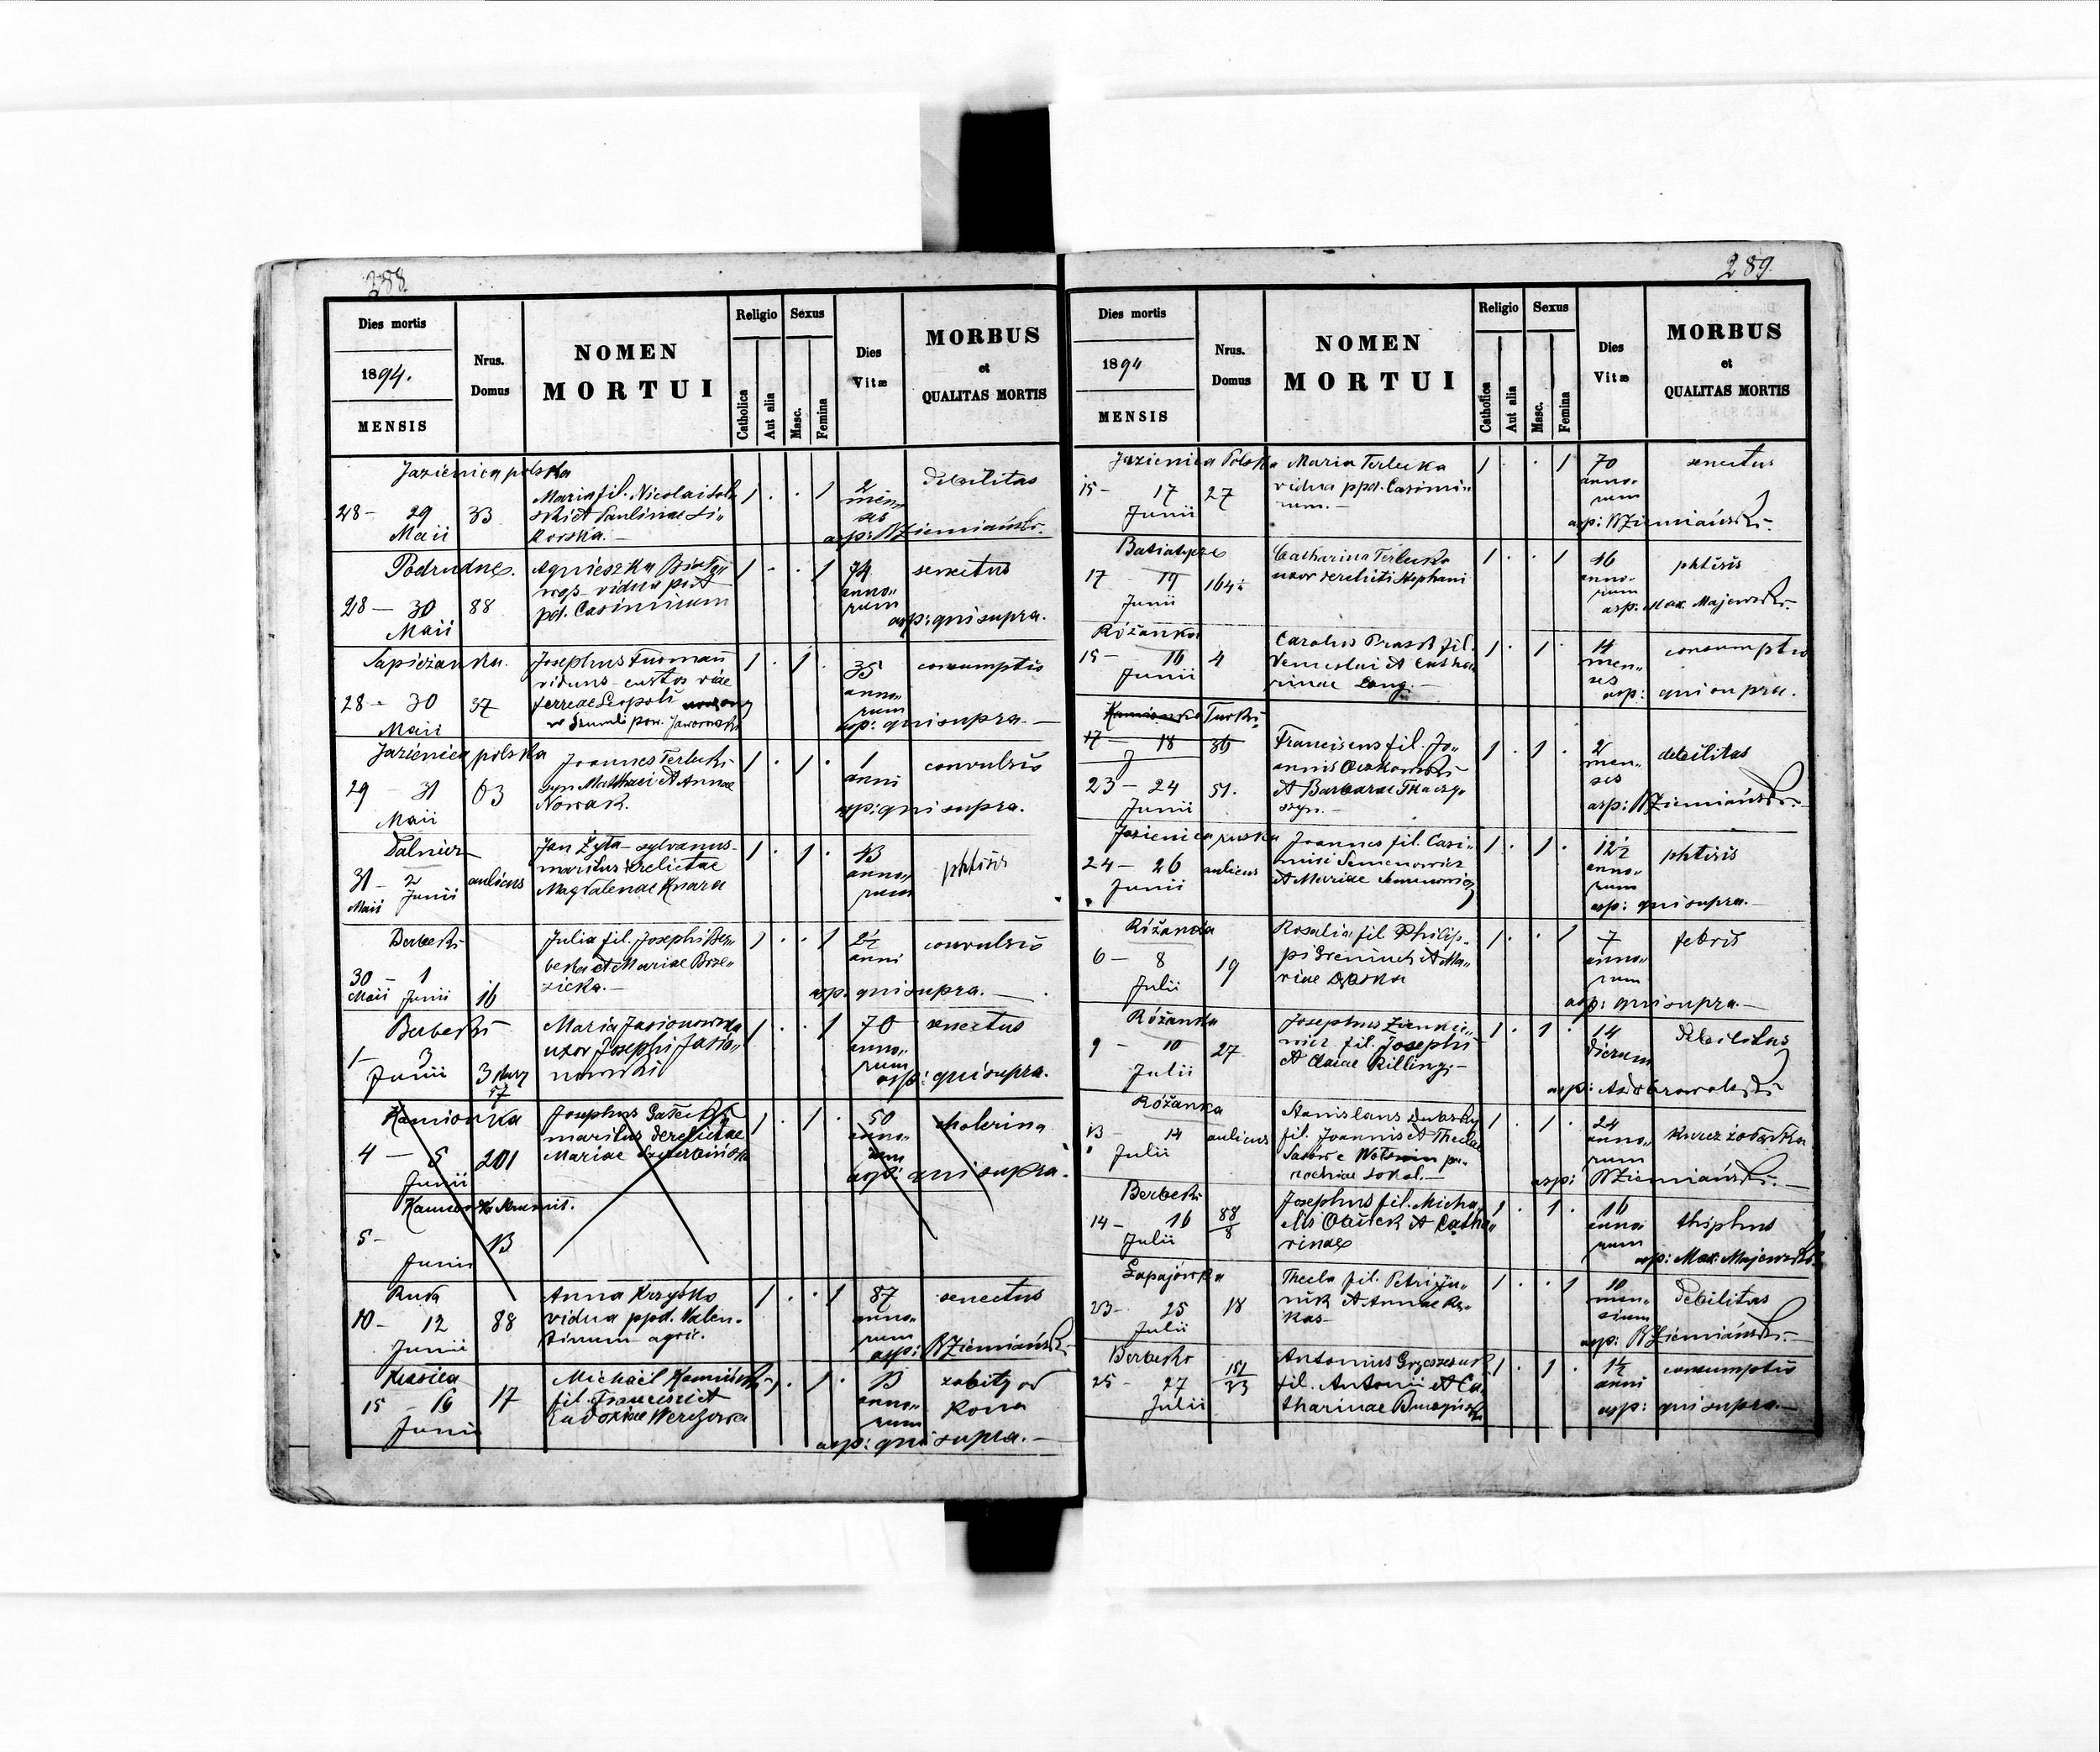 288.
Dies mortis
1894.
MENSIS
Nrus.
Domus
NOMEN
MORTUI
Religio
Catholica
Aut alia
Sexus
Masc.
Femina
Dies
Vitæ
MORBUS
et
QUALITAS MORTIS
Jazienica polska
28 - 29
Maii
33
Maria fil. Nicolai
et Paulinae Si„
korska.—
1 . . 1
2
men„
ses
debilitas
asp: WZiemiański.
Podrudne.
28 — 30
Maii
88
Agnieszka
vidua post
pd. Casimirum
1 . . 1
74
anno„
rum
senectus
asp: qui supra.
Sapieżanka.
28 - 30
Maii
37
Josephus Furman
viduus - custos viae
ferreae Leopoli
1 . 1 .
35
anno„
rum
consumptio
asp: qui supra.—
Jazienica polska
29 - 31
Maii
63
Joannes Terlecki
syn Matthaei et Annae
Nowak.
1 . 1 .
1
anni
convulsio
asp: qui supra.
Dalnicz
31 - 2
Maii Junii
aulicus
Jan Żyta - sylvanus -
maritus derelictae
Magdalenae Knara
1 . 1 .
43
anno„
rum
phtisis
Berbeki
30 - 1
Maii Junii
16
Julia fil. Josephi Ber„
beka et Mariae Brze„
zicka.—
1 . . 1
2½
anni
convulsio
asp: qui supra.—
Berbeki
1 - 3
Junii
3
57
Maria Jasionowska
uxor Josephi Jasio„
nowski
1 . . 1
70
anno„
rum
senectus
asp: qui supra.
Kamionka
4 — 5
Junii
201
Josephus
maritus derelictae
Mariae
1 . 1 .
50
anno„
rum
cholerina
asp: qui supra.
5 -
Junii
13
Ruda
10 - 12
Junii
88
Anna Krzyśko
vidua ppd. Valen„
tinum agric.
1 . . 1
87
anno„
rum
senectus
asp: WZiemiański.
15 - 16
Junii
17
Michaël Kamiński
fil. Francisci et
Eudoxiae
1 . 1 .
13
anno„
rum
zabity od
konia
asp: qui supra.—
289.
Dies mortis
1894
MENSIS
Nrus.
Domus
NOMEN
MORTUI
Religio
Catholica
Aut alia
Sexus
Masc.
Femina
Dies
Vitæ
MORBUS
et
QUALITAS MORTIS
Jazienica Polska
15 - 17
Junii
27
Maria Terlecka
vidua ppd. Casimi„
rum.—
1 . . 1
70
anno„
rum
senectus
asp: WZiemiański.
Batiatycze
17 - 19
Junii
164
Catharina Terlecka
uxor derelicti Stephani
1 . . 1
46
anno„
rum
phtisis
asp: Max. Majewski.
Różanka
15 - 16
Junii
4
Carolus Prast fil.
Venceslai et Catha„
rinae Lang.—
1 . 1 .
14
men„
ses
consumptio
asp: qui supra.
Kamionka Turki
17 - 18
J
36
23 - 24
Junii
51.
Franciscus fil. Jo„
annis Oczkowski
et Barbarae Tkaczy„
szyn.—
1 . 1 .
2
men„
ses
debilitas
asp: WZiemiański.—
Jazienica ruska
24 - 26
Junii
aulicus
Joannes fil. Casi„
miri Semenowicz
et Mariae Semenowicz
1 . 1 .
12½
anno„
rum
phtisis
asp: qui supra.—
Różanka
6 - 8
Julii
19
Rosalia fil. Philip„
pi et Ma„
riae
1 . . 1
7
anno„
rum
febris
asp: qui supra.—
Różanka
9 - 10
Julii
27
Josephus Zienkie„
wicz fil. Josephi
et Clarae Killing.—
1 . 1 .
14
dierum
debilitas
asp: As. Dobrowolski
Różanka
13 - 14
Julii
aulicus
Stanislaus
fil. Joannis et Theclae
parochiae Sokal.—
1 . 1 .
24
anno„
rum
kurcz żołądka
asp: WZiemiański.—
Berbeki
14 - 16
Julii
88
8
Josephus fil. Micha„
elis et Catha„
rinae
1 . 1 .
16
anno
rum
thiphus
asp: Max. Majewski.
Łapajówka
23 - 25
Julii
18
Thecla fil. Petri
et Annae
1 . . 1
10
men„
sium
debilitas
asp: WZiemiański.—
Berbeki
25 - 27
Julii
151
33
Antonius Grzeszczuk
fil. Antonii et Ca„
tharinae
1 . 1 .
1½
anni
consumptio
asp: qui supra.—